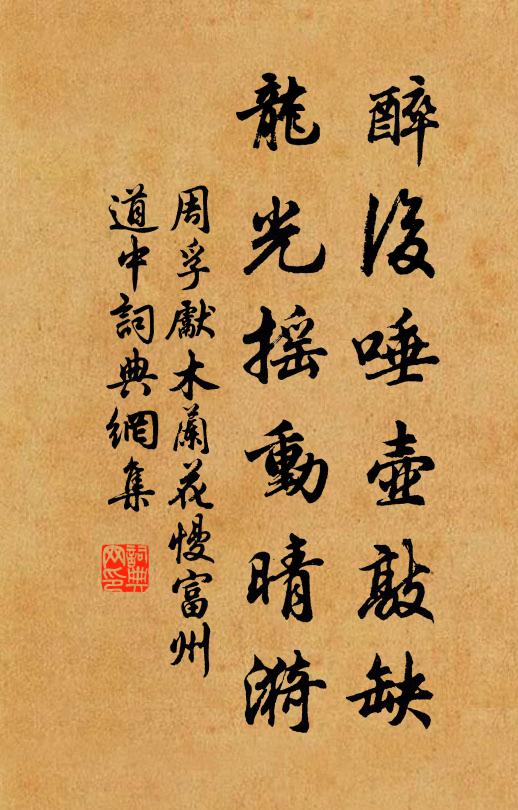 醉後唾壺敲缺
龍光搖動晴漪
周孚獻木蘭花慢富州
道中詞典網集
詞典
網印